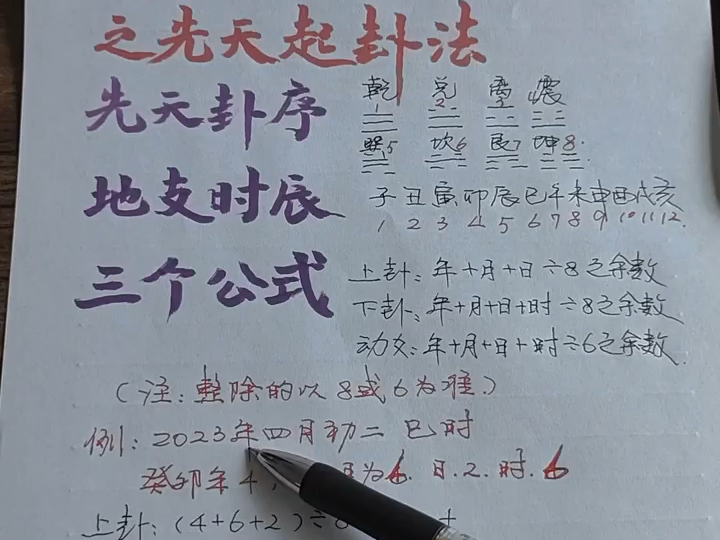 之先天起卦法
先天卦序
乾 兑 离 震
1 2 3 4
巽5 坎6 艮7 坤8
地支时辰
子丑寅卯辰巳午未申酉戌亥
1 2 3 4 5 6 7 8 9 10 11 12
三个公式
上卦：年+月+日÷8之余数
下卦：年+月+日+时÷8之余数
动爻：年+月+日+时÷6之余数
（注：整除的以8或6为准）
例：2023年四月初二 巳时
癸卯年4， 为6. 日.2. 时.6
上卦：（4+6+2）÷8